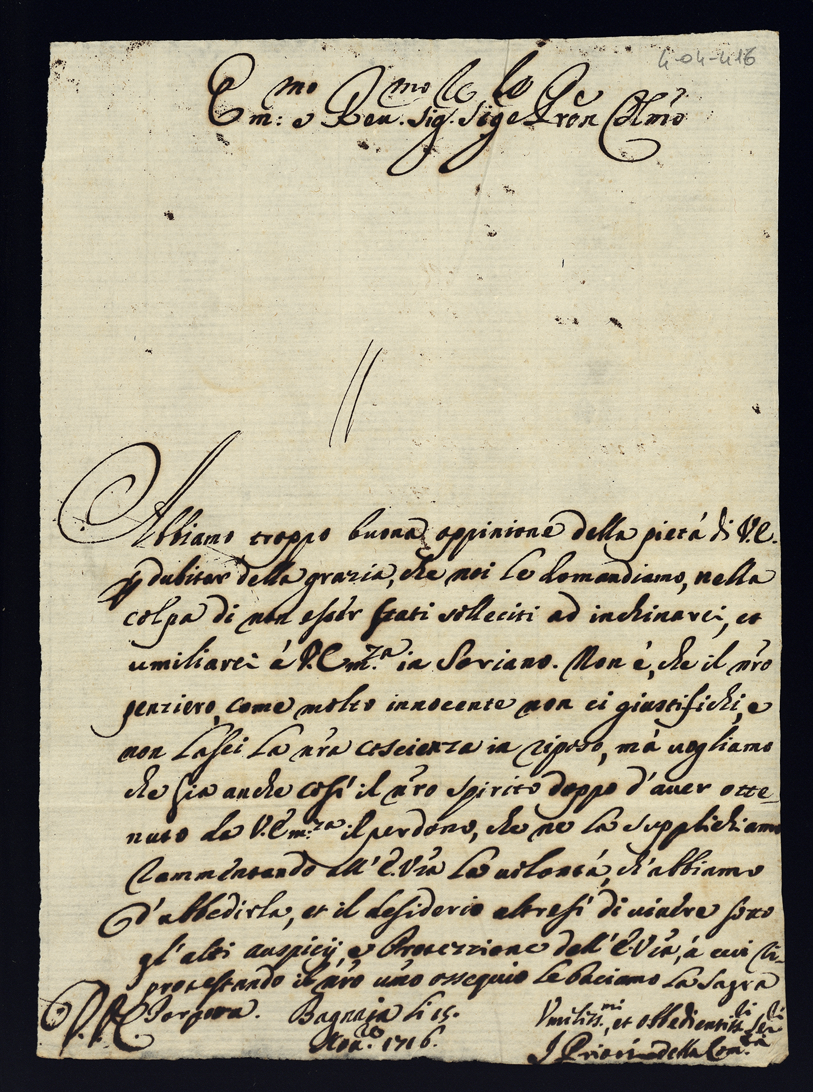 4-04-416
Em:mo e Reu.mo Sig.le Sig.le Pron Colmo
Abbiamo troppo buona oppinione della pietá di V.E.
p dubitar della grazia, che noi Le domandiamo, nella
colpa di non esser stati solleciti ad inchinarci, et
umiliarci á V.Em.za in Soriano. Non é, che il nro
penziero, come molto innocente non ci giustifichi, e
non Lasci La nra coscienza in riposo, má uogliamo
che sia anche cosí il nro spirito doppo d'auer otte
nuto da V.Em.za il perdono, che ne La supplichiamo
rammentando all'E.Vra La uolontá, ch'abbiamo
d'ubbedirla, et il desiderio altresí di uiuere sotto
gl'alti auspicij, e Protezzione dell'E.Vra, á cui ri-
protestando il nro umo ossequio Le baciamo La Sagra
Porpora. Bagnaja Li 15.
Nou.bre 1716.
Vmiliss.mi et obbedientiss.mi Ser.ri
I Priori della Com.tà